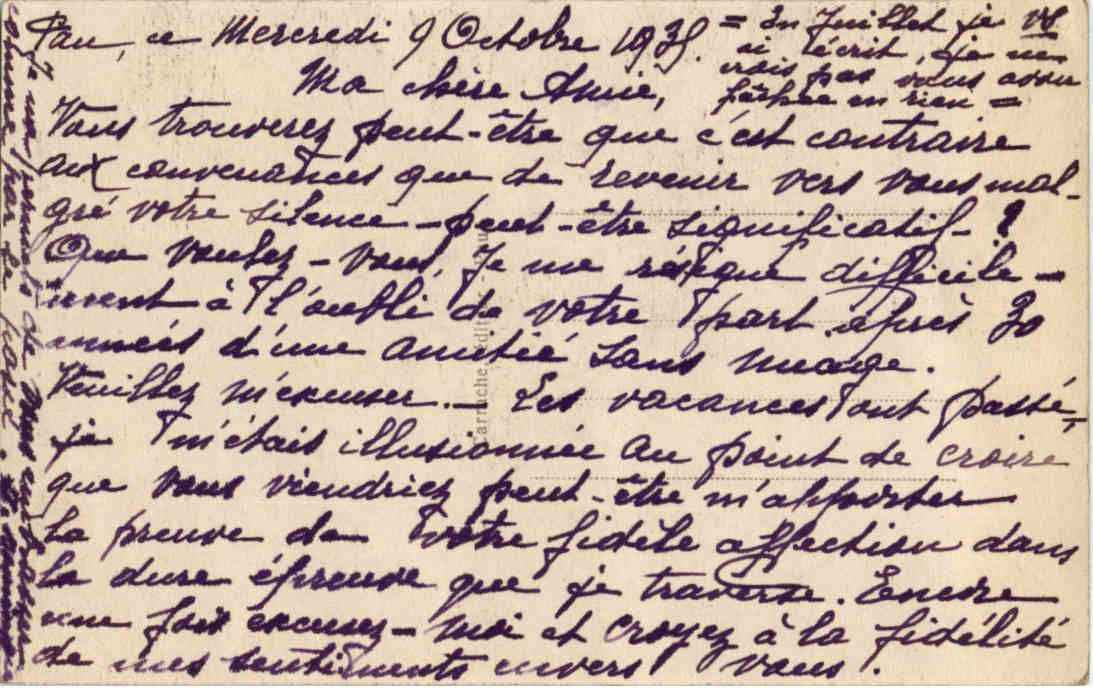 Pau, ce Mercredi 9 Octobre 1935.
= En Juillet je vs
ai écrit, je ne
crois pas vous avoir
fâchée en rien =
Ma chère Amie,
Vous trouverez peut-être que c'est contraire
aux convenances que de revenir vers vous mal-
gré votre silence - peut-être significatif - ?
Que voulez-vous, Je me résigne difficile-
ment à l'oubli de votre part après 30
années d'une amitié sans nuage.
Veuillez m'excuser. - Les vacances ont passé,
je m'étais illusionnée au point de croire
que vous viendriez peut-être m'apporter
la preuve de votre fidèle affection dans
la dure épreuve que je traverse. Encore
une fois excusez-moi et croyez à la fidélité
de mes sentiments envers vous.
Carrache édit
de vous embrasser
comme par le passé.